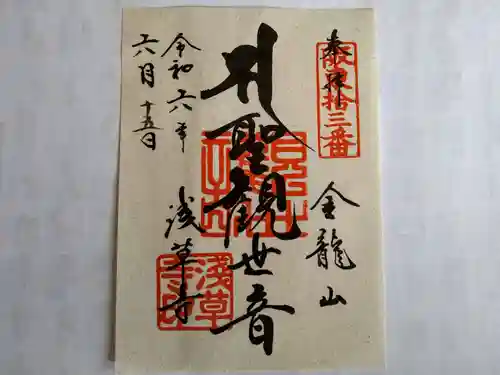 奉拝
坂東拾三番
金龍山
聖観世音
浅草寺
浅草寺印
令和六年
六月十五日